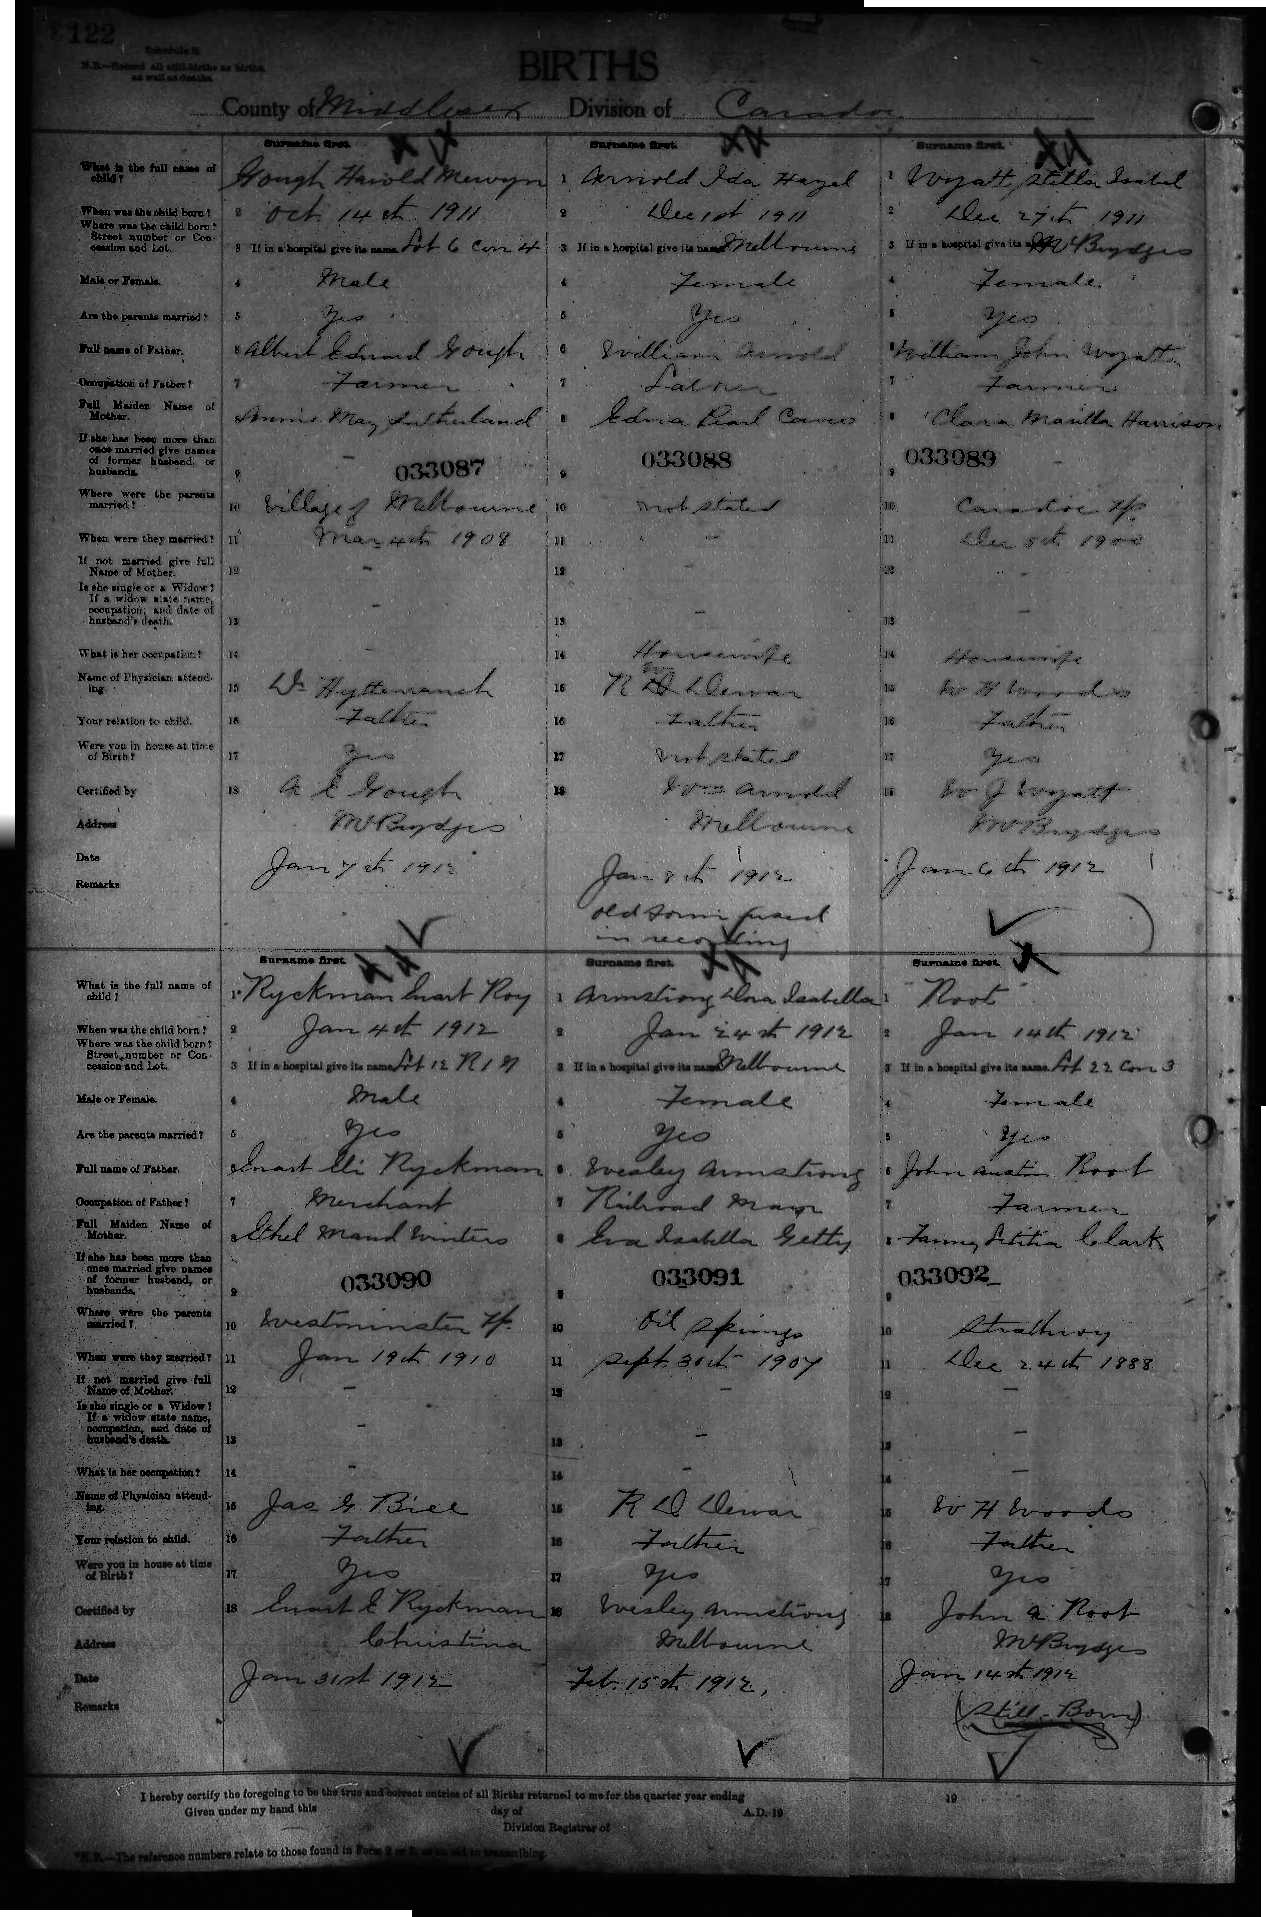 122
Schedule B.
N.B.—Record all still-births as births, as well as deaths.
BIRTHS
County of Middlesex Division of Caradoc
Surname first. Surname first. Surname first.
What is the full name of child? Gough Harold Mervyn 1 Arnold Ida Hazel 1 Wyatt, Stella Isabel
When was the child born? 2 Oct 14th 1911 2 Dec 1st 1911 2 Dec 27th 1911
Where was the child born? Street number or Concession and Lot. 3 If in a hospital give its name. Lot 6 Con 4 3 If in a hospital give its name Melbourne 3 If in a hospital give its Mt Brydges
Male or Female. 4 Male 4 Female 4 Female
Are the parents married? 5 Yes 5 Yes 5 Yes
Full name of Father. 6 Albert Edward Gough 6 William Arnold 6 William John Wyatt
Occupation of Father? 7 Farmer 7 Laborer 7 Farmer
Full Maiden Name of Mother. Annie May Sutherland 8 Edna Pearl 8 Clara Harrison
If she has been more than once married give names of former husband, or husbands. 9 - 033087 9 033088 9 033089 -
Where were the parents married? 10 Village of Melbourne 10 not stated 10 Caradoc Tp.
When were they married? 11 Mar 4th 1908 11 - 11 Dec 5th 1900
If not married give full Name of Mother. 12 - 12 - 12 -
Is she single or a Widow? If a widow state name, occupation, and date of husband's death. 13 - 13 - 13 -
What is her occupation? 14 - 14 Housewife 14 Housewife
Name of Physician attending. 15 Dr 15 R D Dewar 15 W H Woods
Your relation to child. 16 Father 16 Father 16 Father
Were you in house at time of Birth? 17 Yes 17 not stated 17 Yes
Certified by 18 A E Gough 18 Wm Arnold 18 W J Wyatt
Address Mt Brydges Melbourne Mt Brydges
Date Jan 7th 1912 Jan 8th 1912 Jan 6th 1912
Remarks old form used
in recording
Surname first. Surname first. Surname first.
What is the full name of child? 1 Ryckman Roy 1 Armstrong Dora Isabella 1 "Root"
When was the child born? 2 Jan 4th 1912 2 Jan 24th 1912 2 Jan 14th 1912
Where was the child born? Street number or Concession and Lot. 3 If in a hospital give its name. Lot 12 R 1 N 3 If in a hospital give its name Melbourne 3 If in a hospital give its name. Lot 22 Con 3
Male or Female. 4 Male 4 Female 4 Female
Are the parents married? 5 Yes 5 Yes 5 Yes
Full name of Father. 6 Eli Ryckman 6 Wesley Armstrong 6 John Austin Root
Occupation of Father? 7 Merchant 7 Railroad Man 7 Farmer
Full Maiden Name of Mother. 8 Ethel Maud Winters 8 Eva Isabella Getty 8 Fanny Letitia Clark
If she has been more than once married give names of former husband, or husbands. 9 033090 9 033091 9 033092 -
Where were the parents married? 10 Westminster Tp. 10 Oil Springs 10 Strathroy
When were they married? 11 Jan 19th 1910 11 Sept. 30th 1907 11 Dec 24th 1888
If not married give full Name of Mother. 12 - 12 - 12 -
Is she single or a Widow? If a widow state name, occupation, and date of husband's death. 13 - 13 - 13 -
What is her occupation? 14 - 14 - 14 -
Name of Physician attending. 15 Jas G. 15 R D Dewar 15 W H Woods
Your relation to child. 16 Father 16 Father 16 Father
Were you in house at time of Birth? 17 Yes 17 Yes 17 Yes
Certified by 18 E Ryckman 18 Wesley Armstrong 18 John A Root
Address Christina Melbourne Mt Brydges
Date Jan 31st 1912 Feb. 15th 1912. Jan 14th 1912
Remarks (Still-Born)
I hereby certify the foregoing to be the true and correct entries of all Births returned to me for the quarter year ending 19
Given under my hand this day of A.D. 19
Division Registrar of
*N.B.—The reference numbers relate to those found in Form 2 as an aid to transcribing.